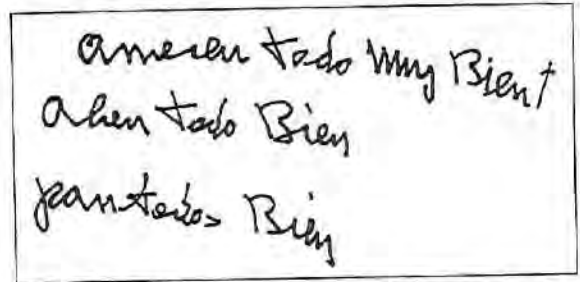 amesen todo muy Bien
ahen todo Bien
pan todos Bien